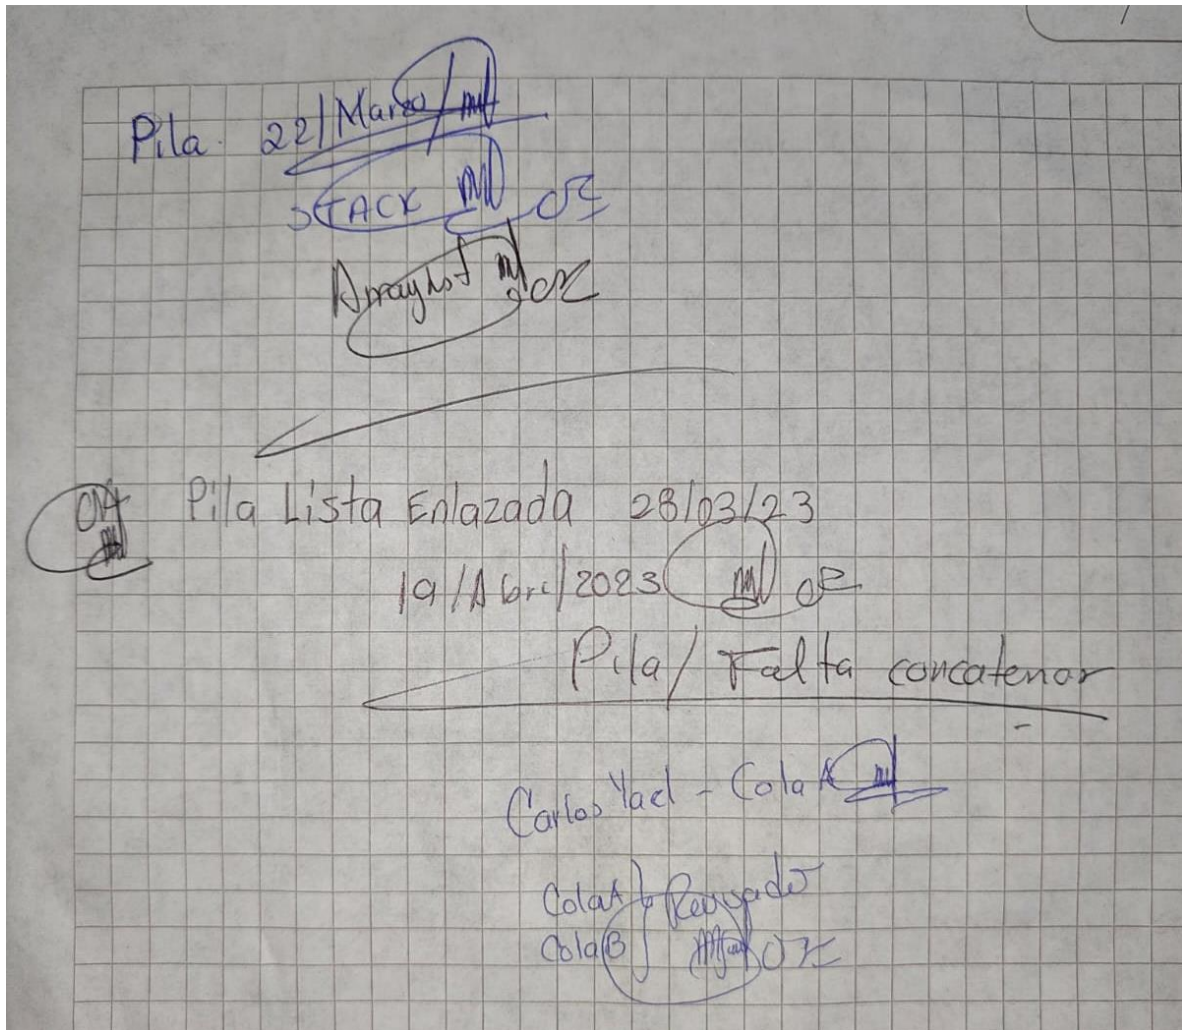 Pila. 22/Marzo/
STACK OK
ArrayList OK
Pila Lista Enlazada 28/03/23
19/Abril/2023 OK
Pila/ Falta concatenar
Carlos Yael - Cola A
Cola A } Revisado
Cola B } OK